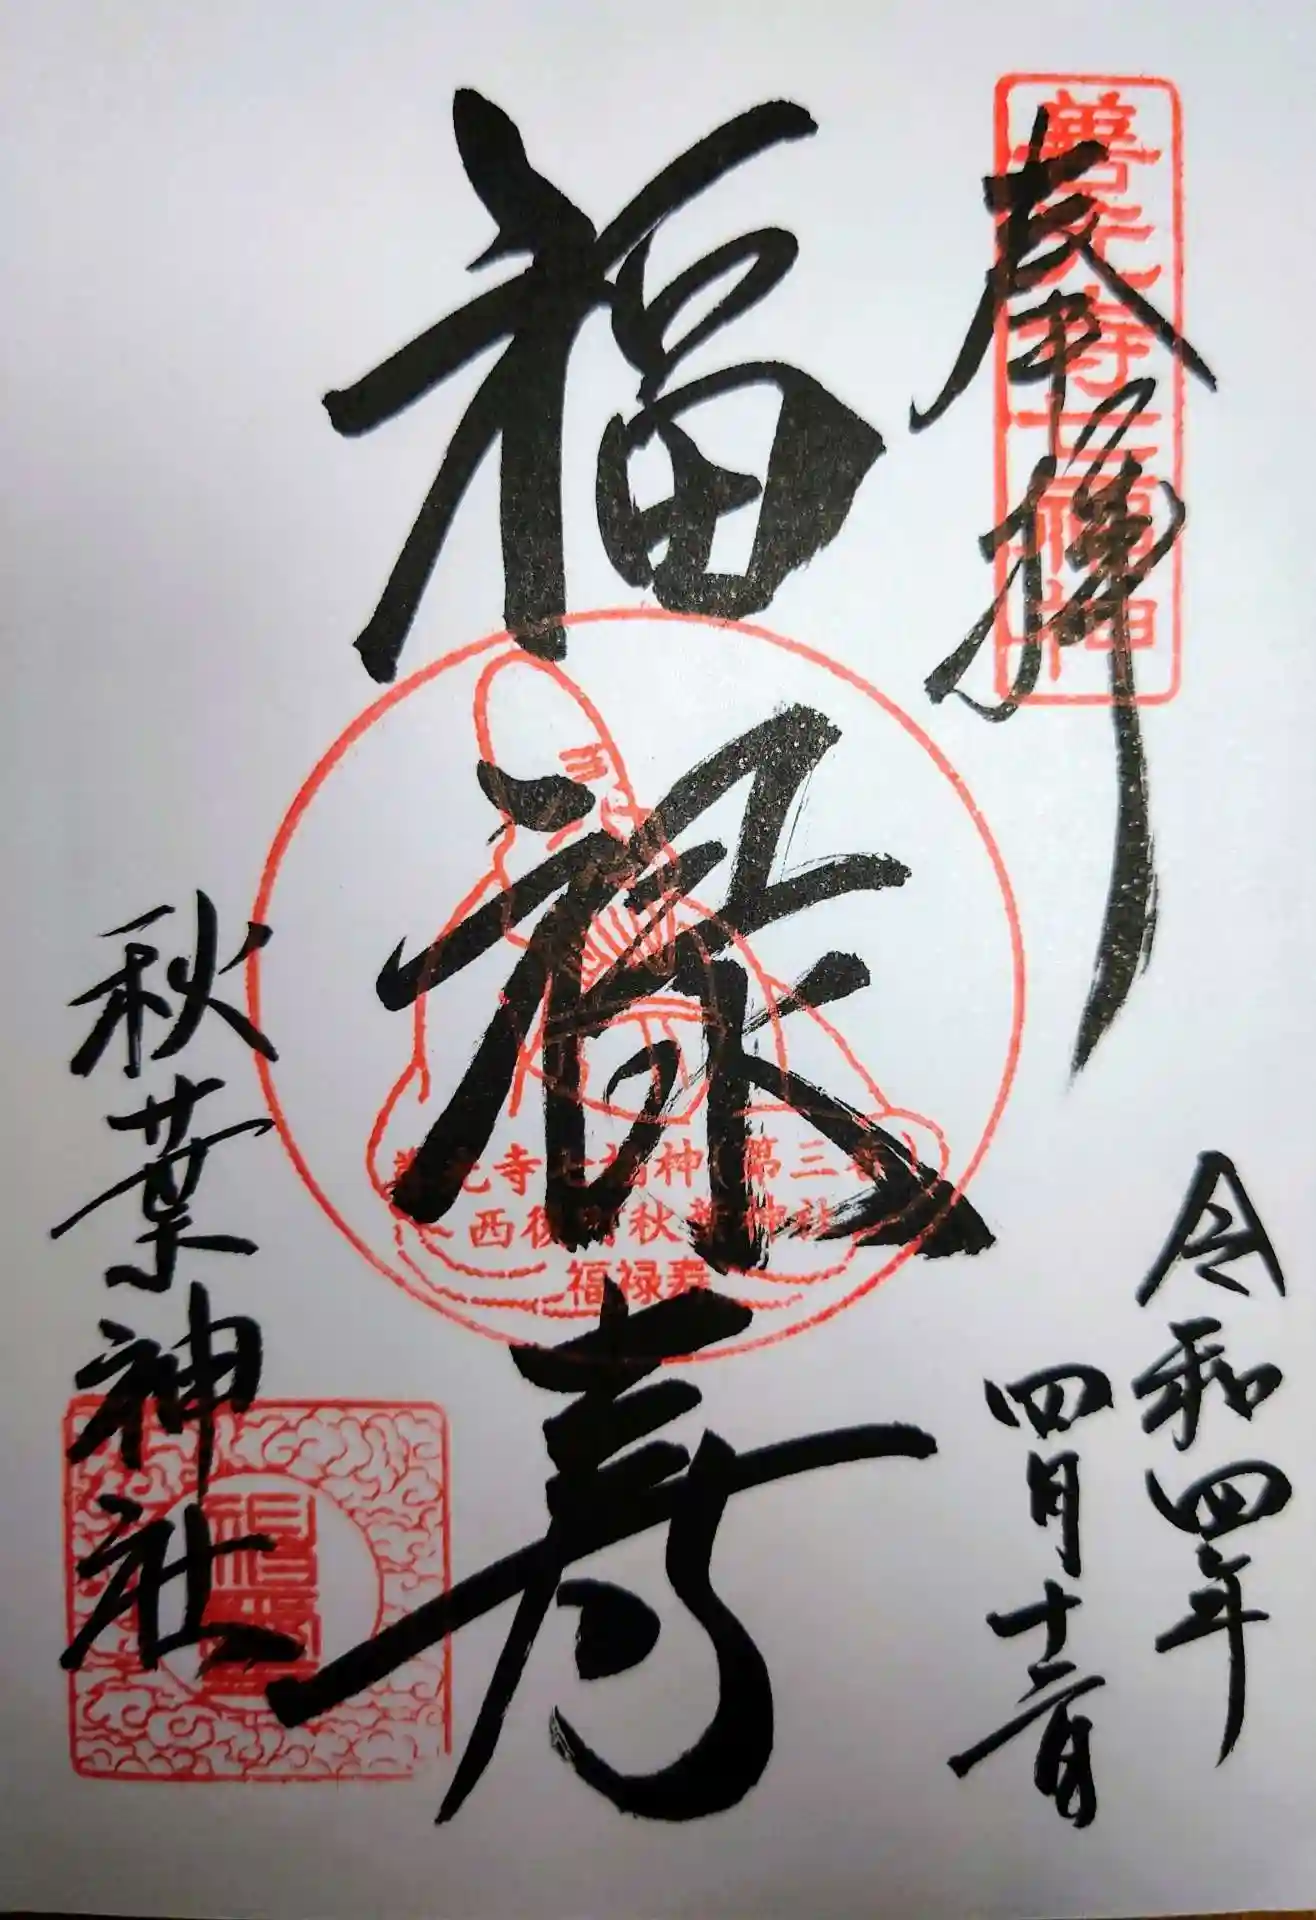 奉拝
善光寺七福神
令和四年
四月十六日
福禄寿
善光寺七福神(第三番)
西後町秋葉神社
福禄寿
秋葉神社